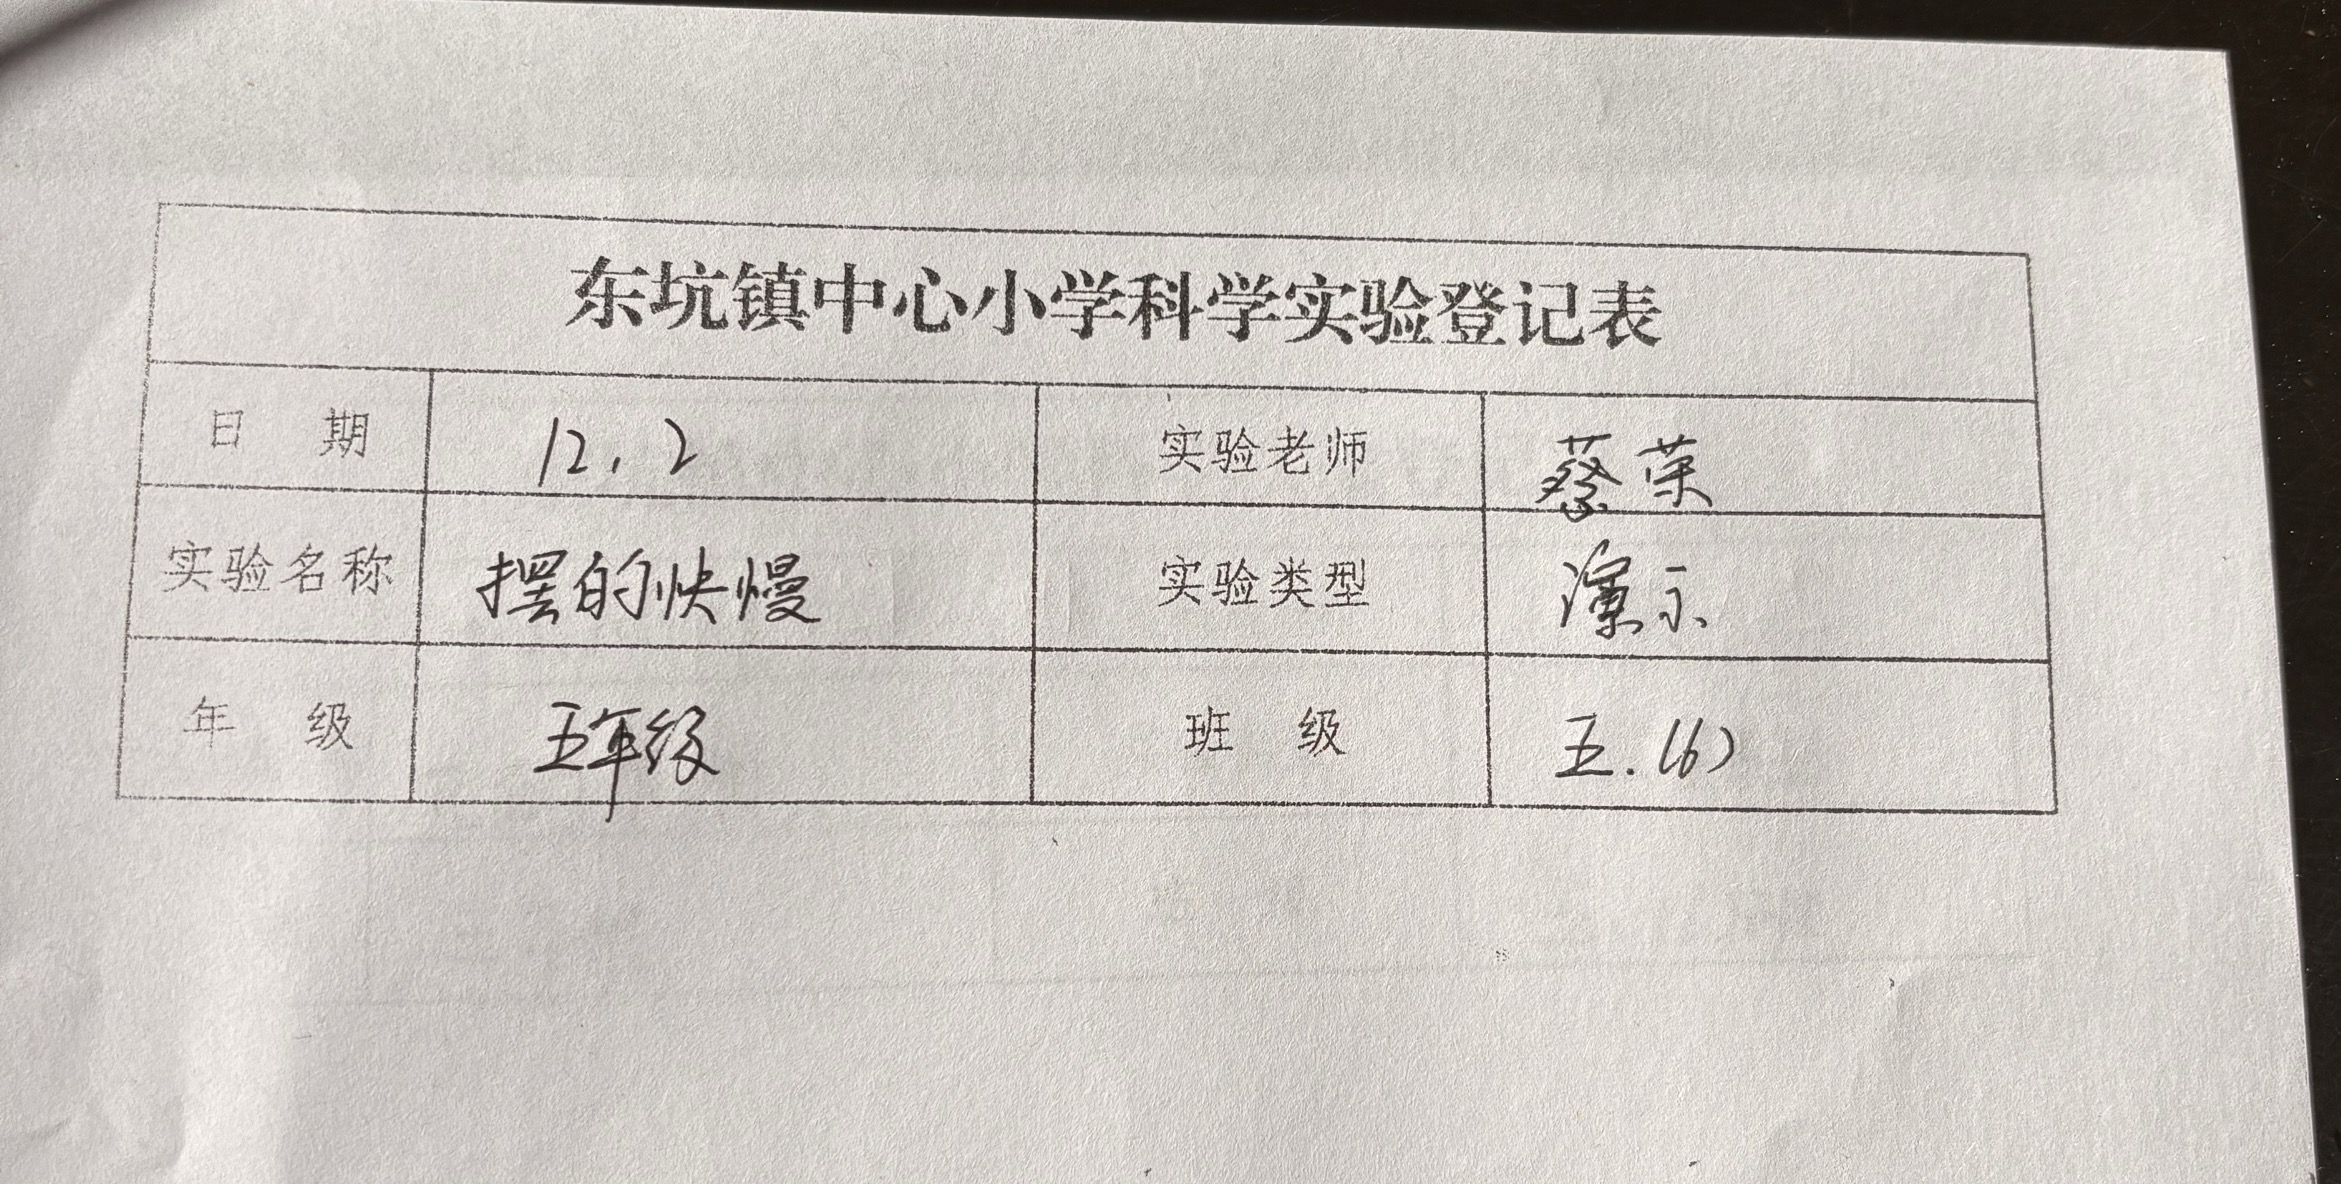 东坑镇中心小学科学实验登记表
日 期 12.2 实验老师 蔡荣
实验名称 摆的快慢 实验类型 演示
年 级 五年级 班 级 五.(6)